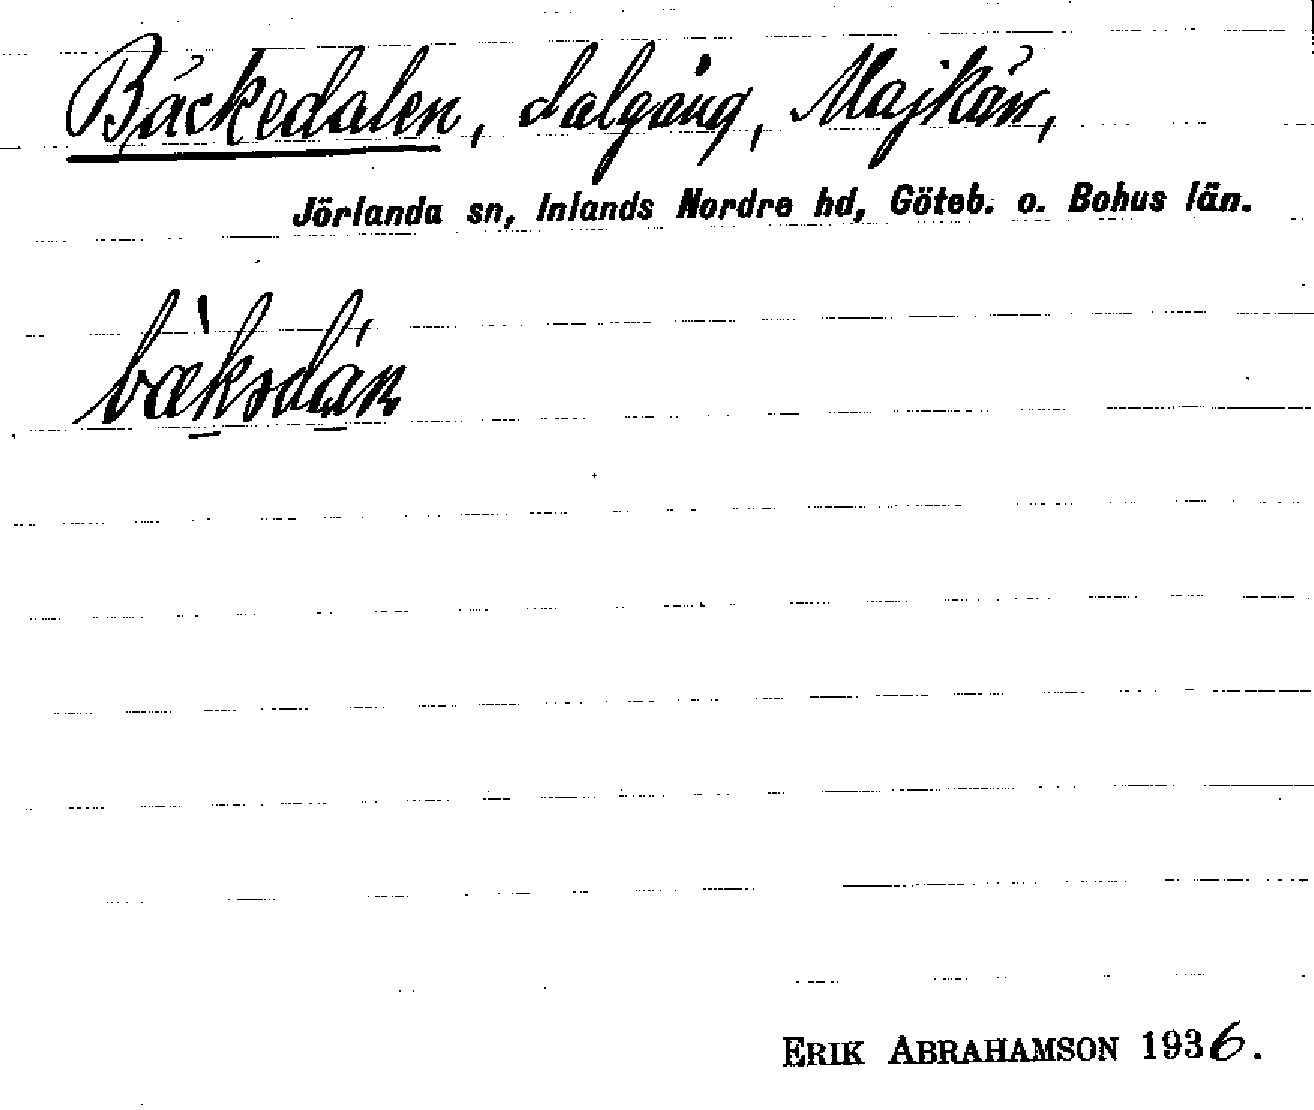 Bäckedalen, dalgång, Majkärr,
Jörlanda sn, Inlands Nordre hd, Göteb. o. Bohus län.
ERIK ABRAHAMSON 1936.